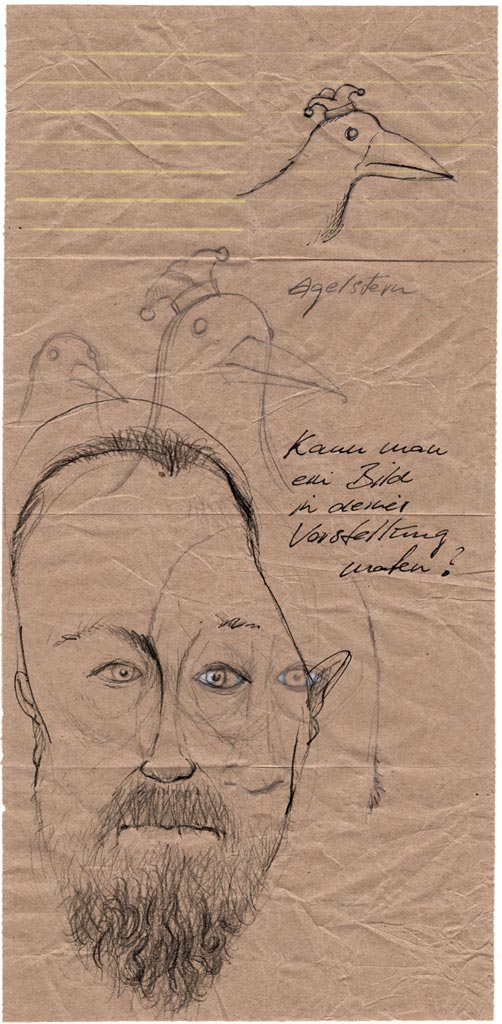 Agelstern
Kann man
ein Bild
in deiner
Vorstellung
malen?